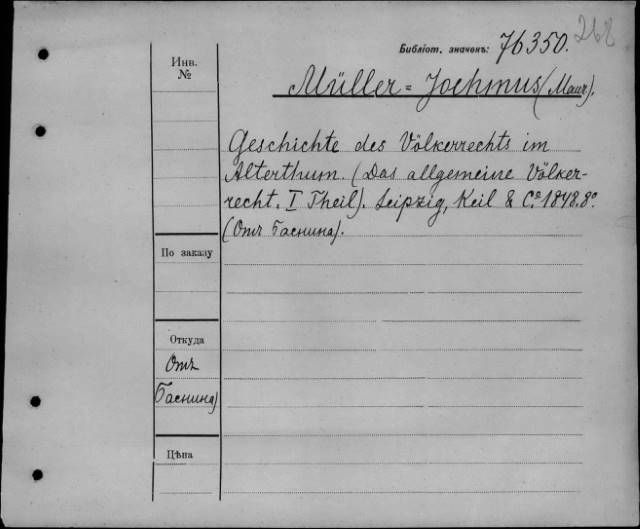 268
Библіот. значекъ: 76350.
Инв. №
Müller=Jochmus (Maur).
Geschichte des Völkerrechts im
Alterthum. (Das allgemeine Völker-
recht. I Theil). Leipzig, Keil & Cº 1848. 8º.
(Отъ Баснина).
По заказу
Откуда
Отъ
Баснина
Цѣна